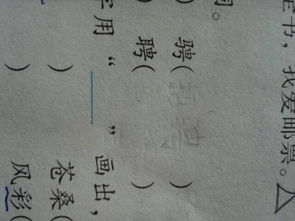 书，我爱邮票。
。
) 骋( )
) 聘( )
字用“ ”画出，
) 苍桑(
) 风彩(